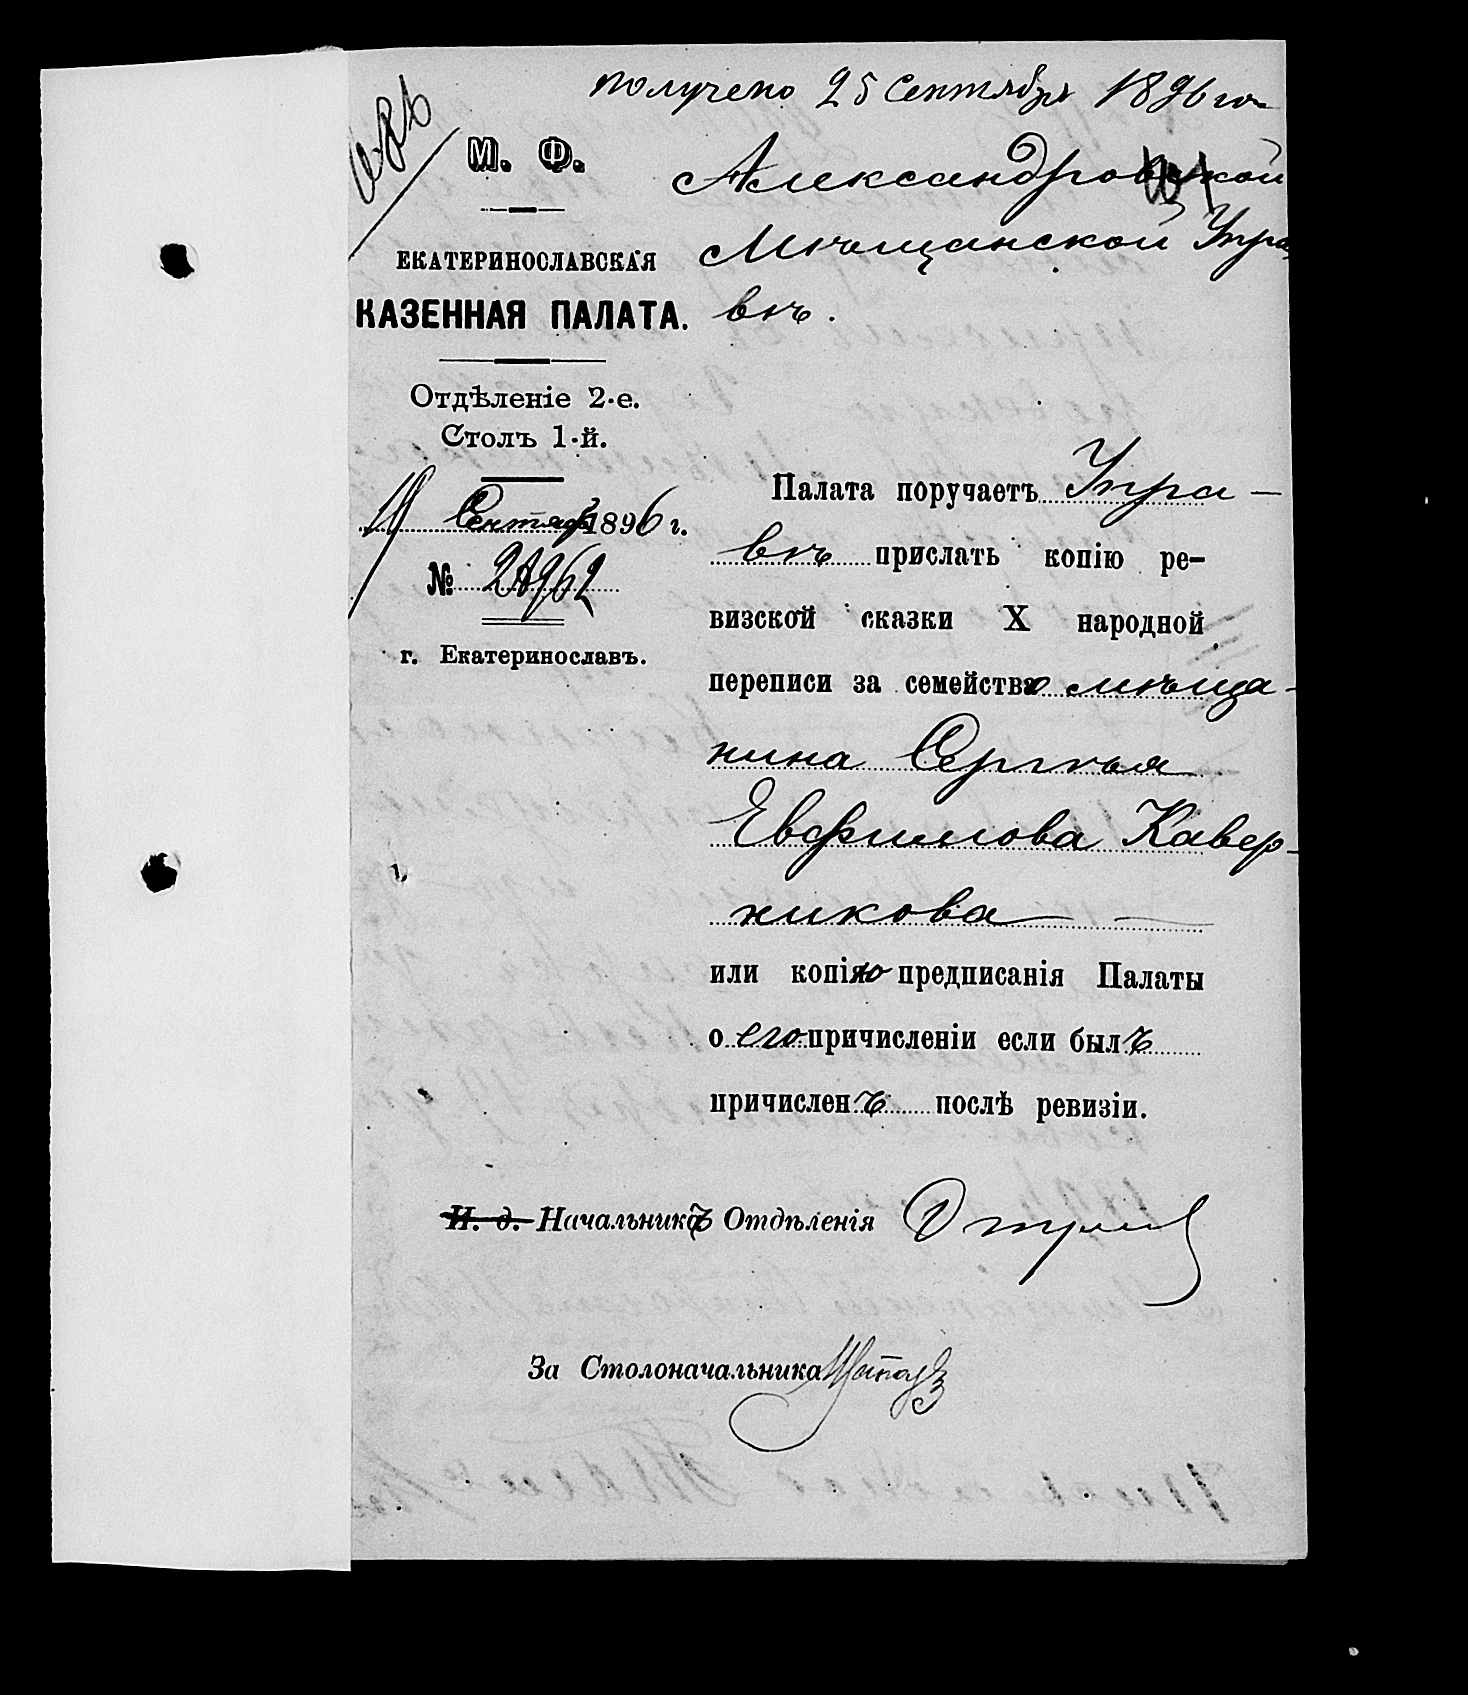 получено 25 Сентября 1896 го
М. Ф.
Александровской
Мѣщанской Упра
вѣ.
ЕКАТЕРИНОСЛАВСКАЯ
КАЗЕННАЯ ПАЛАТА.
Отдѣленіе 2-е.
Столъ 1-й.
Сентяб 1896 г.
№ 28962
г. Екатеринославъ.
Палата поручаетъ Упра-
вѣ прислать копію ре-
визской сказки X народной
переписи за семейство мѣща-
нина Сергѣя
Евфимова Кавер-
никова
или копію предписанія Палаты
о его причисленіи если былъ
причисленъ послѣ ревизіи.
И. д. Начальникъ Отдѣленія
За Столоначальника